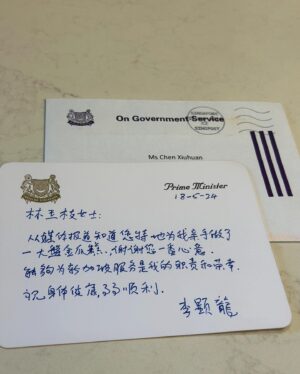 On Government Service
SINGAPORE
SINGPOST
Ms Chen Xiuhuan
Prime Minister
18-5-24
林玉枝女士:
从媒体报道知道您特地为我亲手做了
一大盘金瓜糕,谢谢您一番心意.
能够为新加坡服务是我的职责和荣幸.
祝身体健康,万事顺利.
李顯龍